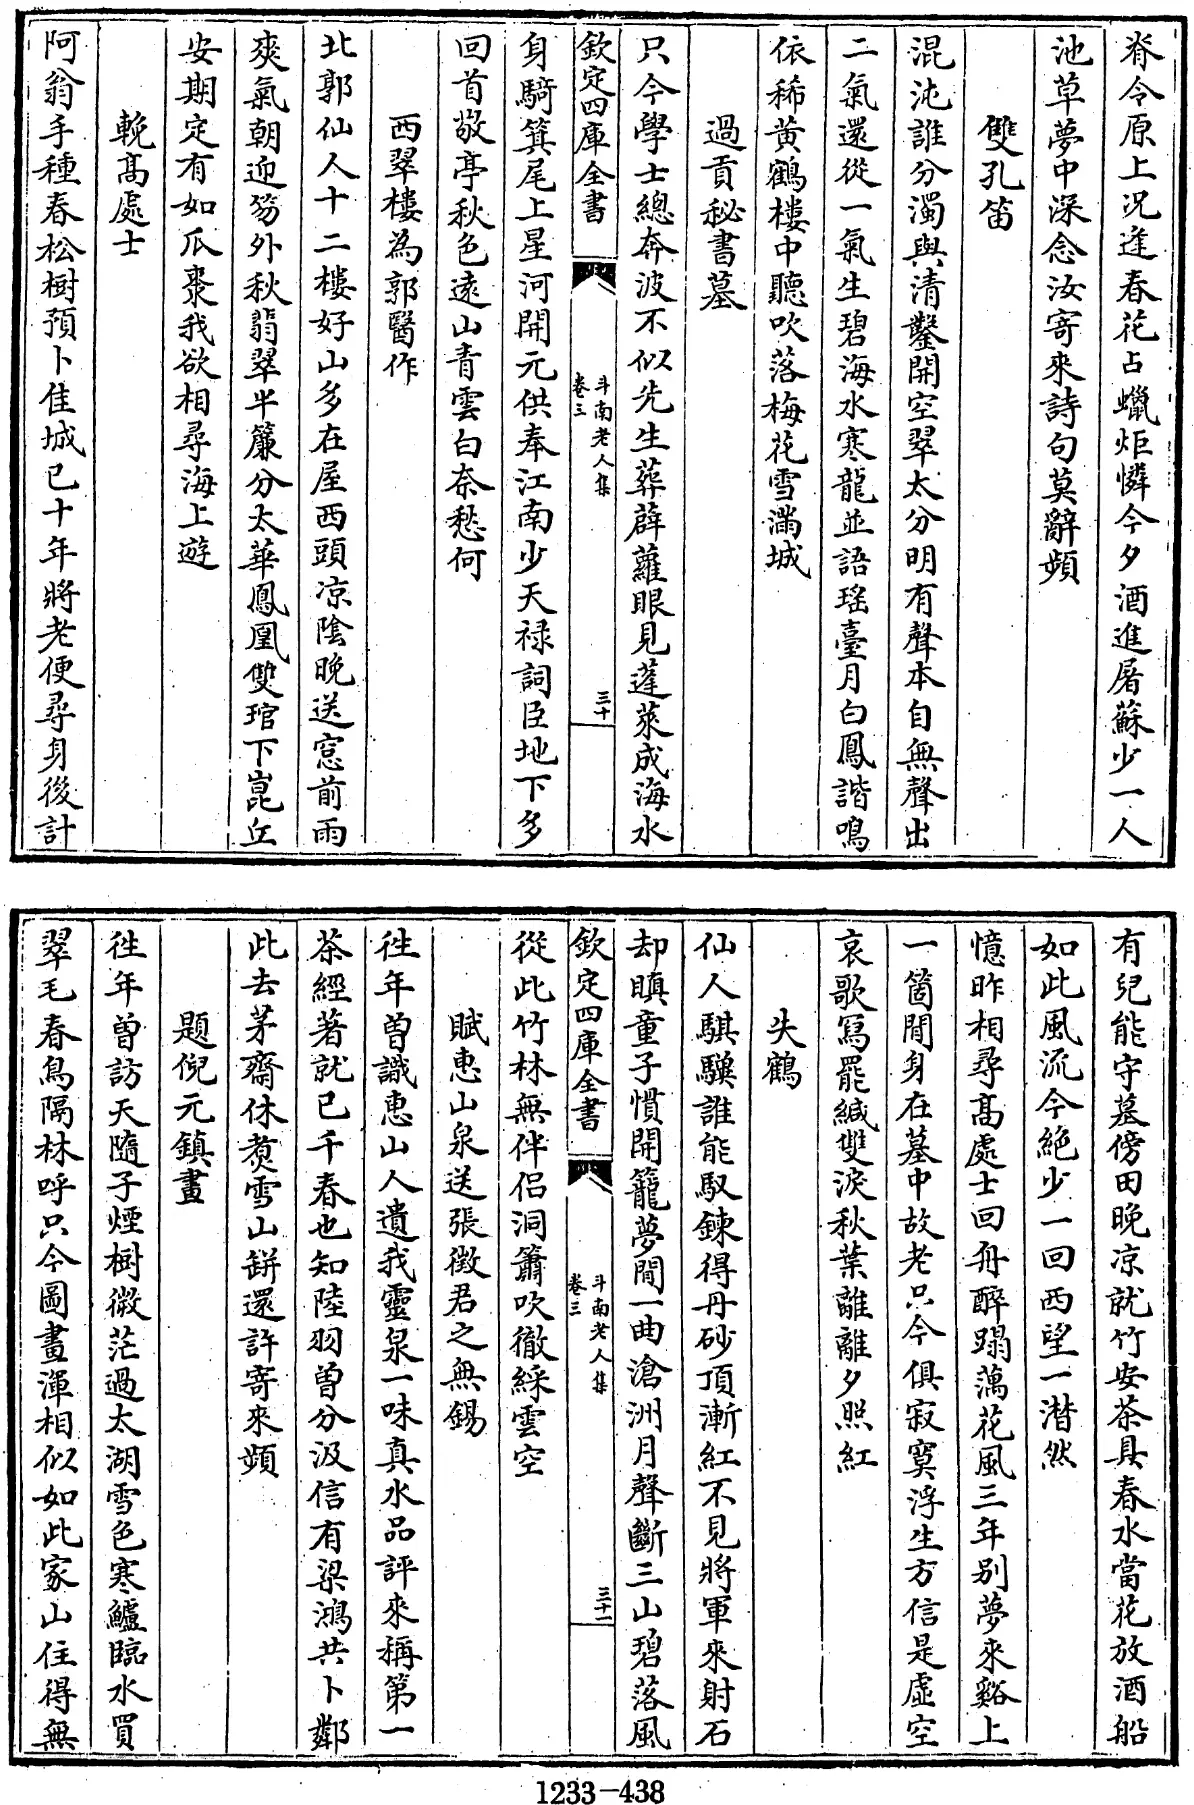 脊令原上况逢春花占蠟炬憐今夕酒進屠蘇少一人
池草夢中深念汝寄來詩句莫辭頻
雙孔笛
混沌誰分濁與清鑿開空翠太分明有聲本自無聲出
二氣還從一氣生碧海水寒龍並語瑤臺月白鳳諧鳴
依稀黄鶴樓中聽吹落梅花雪滿城
過貢秘書墓
只今學士總奔波不似先生葬薜蘿眼見蓬萊成海水
欽定四庫全書
斗南老人集
卷三
三十
身騎箕尾上星河開元供奉江南少天禄詞臣地下多
回首敬亭秋色遠山青雲白奈愁何
西翠樓為郭醫作
北郭仙人十二樓好山多在屋西頭凉陰晚送窓前雨
爽氣朝迎笏外秋翡翠半簾分太華鳳凰雙琯下崑丘
安期定有如瓜棗我欲相尋海上遊
輓髙處士
阿翁手種春松樹預卜佳城已十年將老便尋身後計
有兒能守墓傍田晚凉就竹安茶具春水當花放酒船
如此風流今絶少一回西望一潸然
憶昨相尋髙處士回舟醉蹋藕花風三年别夢來谿上
一箇閒身在墓中故老只今俱寂寞浮生方信是虚空
哀歌寫罷緘雙淚秋葉離離夕照紅
失鶴
仙人騏驥誰能馭鍊得丹砂頂漸紅不見將軍來射石
却瞋童子慣開籠夢間一曲滄洲月聲斷三山碧落風
欽定四庫全書
斗南老人集
卷三
三十一
從此竹林無伴侣洞簫吹徹綵雲空
賦惠山泉送張徵君之無錫
徃年曽識惠山人遺我靈泉一味真水品評來稱第一
茶經著就已千春也知陸羽曽分汲信有梁鴻共卜鄰
此去茅齋休煑雪山缾還許寄來頻
題倪元鎮畫
徃年曽訪天隨子煙樹微茫過太湖雪色寒鱸臨水買
翠毛春鳥隔林呼只今圖畫渾相似如此家山住得無
1233-438